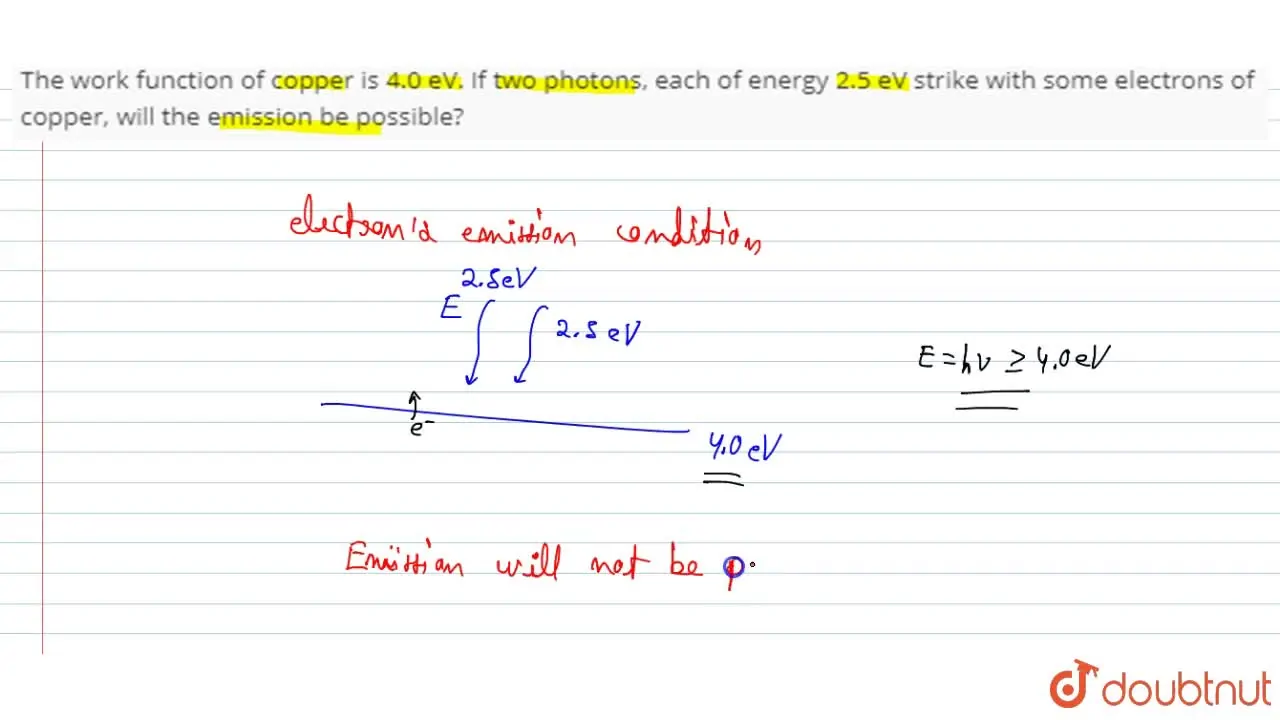 The work function of copper is 4.0 eV. If two photons, each of energy 2.5 eV strike with some electrons of
copper, will the emission be possible?
electronic emission condition
2.5eV
E
2.5 eV
E = hν ≥ 4.0 eV
e⁻
4.0 eV
Emission will not be p
doubtnut